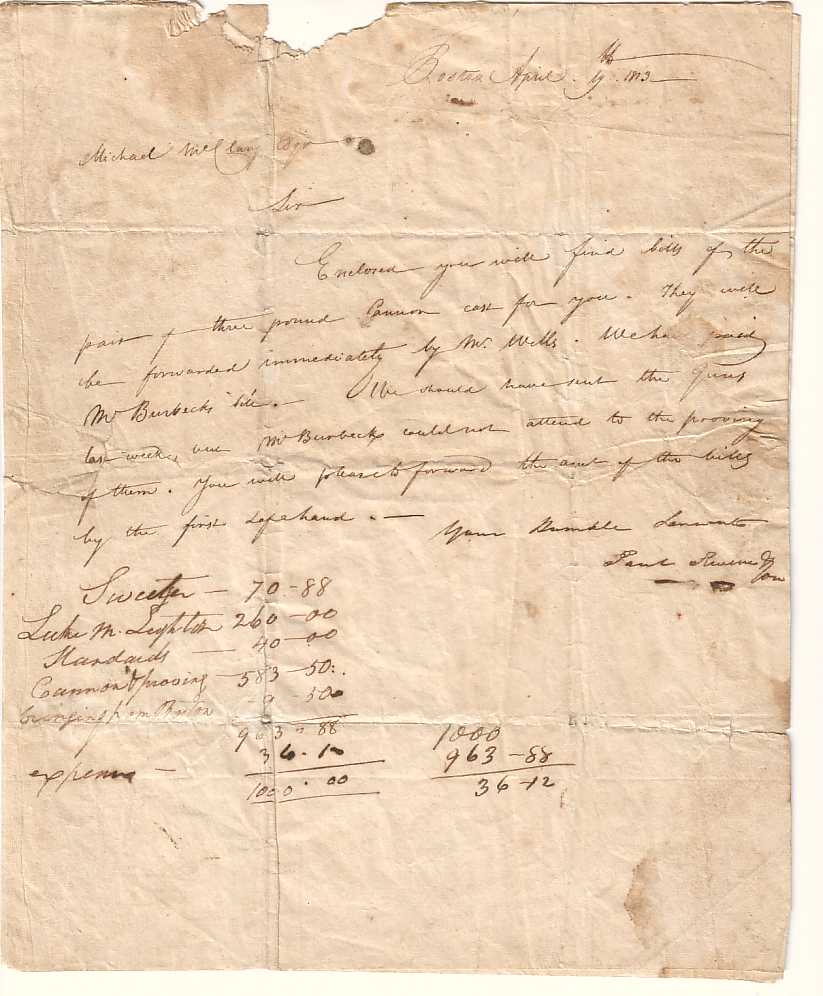 Boston April 9th 1813
Michael McClary Esqr
Sir
Enclosed you will find bills of the
pair of three pound Cannon cast for you. They will
be forwarded immediately by Mr. Wells. We have paid
Mr Burbecks bill.— We should have sent the Guns
last week, but Mr Burbeck could not attend to the proving
of them. You will please to forward the amt of the bills
by the first safe hand.—
Your Humble Servants
Paul Revere & Son
Sweetser — 70-88
Luke M. Leighton 260-00
Standards — 40-00
Cannon & proving — 583-50
bringing from Boston 9-50
963-88
expense — 36.12
1000.00
1000
963-88
36-12